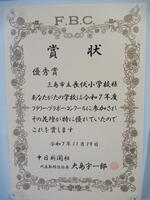 F.B.C.
賞状
優秀賞
三島市立長伏小学校様
あなたがたの学校は令和7年度
フラワー・ブラボー・コンクールに参加され
その花壇が特に優れていたので
これを賞します
令和7年11月19日
中日新聞社
大島宇一郎